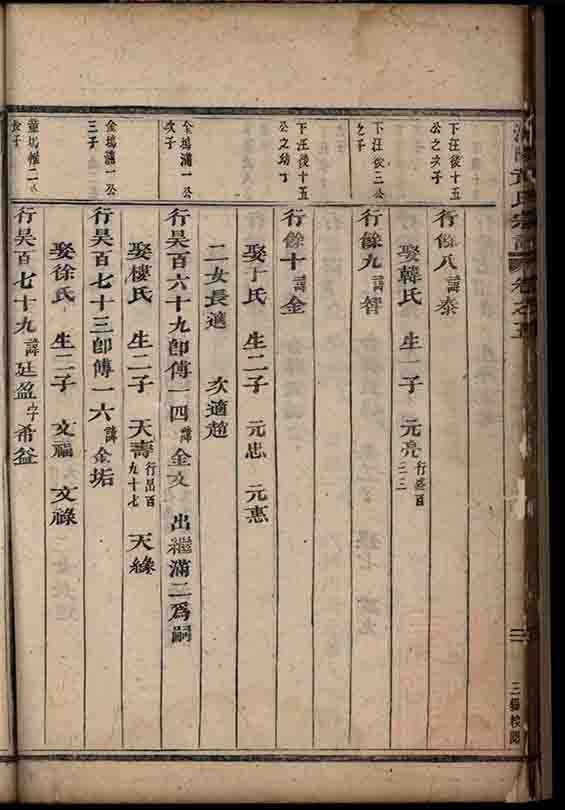 氏宗譜 卷之五
三
下汪後十五
公之次子
行餘八諱泰
娶韓氏 生一子 元亮行盛百三三
下汪後三公
之子
行餘九諱智
下汪後十五
公之幼子
行餘十諱金
娶于氏 生二子 元忠 元惠
二女長適 次適趙
金塢滿一公
次子
行昊百六十九即傅一四諱金文 出繼滿二爲嗣
娶樓氏 生二子 天壽行昂百九十七 天緣
金塢滿一公
三子
行昊百七十三即傅一六諱金垢
娶徐氏 生二子 文福 文祿
二公
行昊百七十九諱廷盈字希益